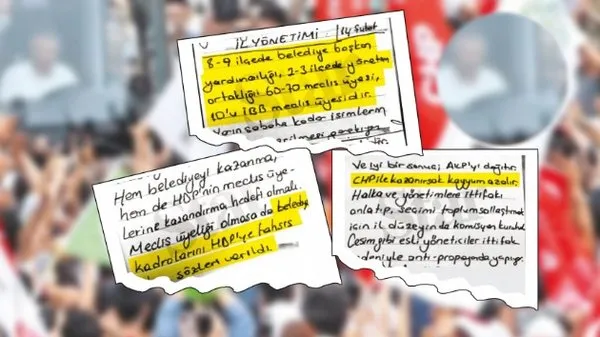 İL YÖNETİMİ 14 Şubat
8-9 ilçede belediye başkan
yardımcılığı, 2-3 ilçede yönetim
ortaklığı 60-70 meclis üyesi,
10'u İBB meclis üyesidir.
Yarın sabaha kadar isimlerin
Hem belediyeyi kazanma,
hem de HDP'nin meclis üye-
lerine kazandırma hedefi olmalı.
Meclis üyeliği olmasa da belediye
kadrolarını HDP'ye tahsis
sözleri verildi.
Ve iyi bir sonuç; AKP'yi dağıtır.
CHP ile kazanırsak kayyum azalır.
Halka ve yönetimlere ittifakı
anlatıp, seçimi toplumsallaştırmak
için il düzeyinde komisyon kuruldu.
eski yöneticiler ittifak
nedeniyle anti-propaganda yapıyor.
CHP